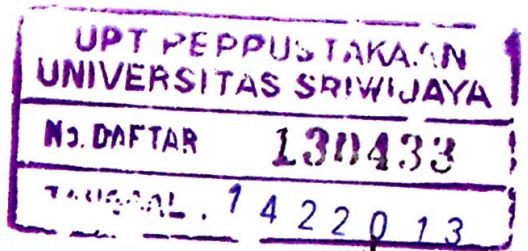 UPT PERPUSTAKAAN
UNIVERSITAS SRIWIJAYA
No. DAFTAR 130433
TANGGAL. 1 4 2 2 0 1 3